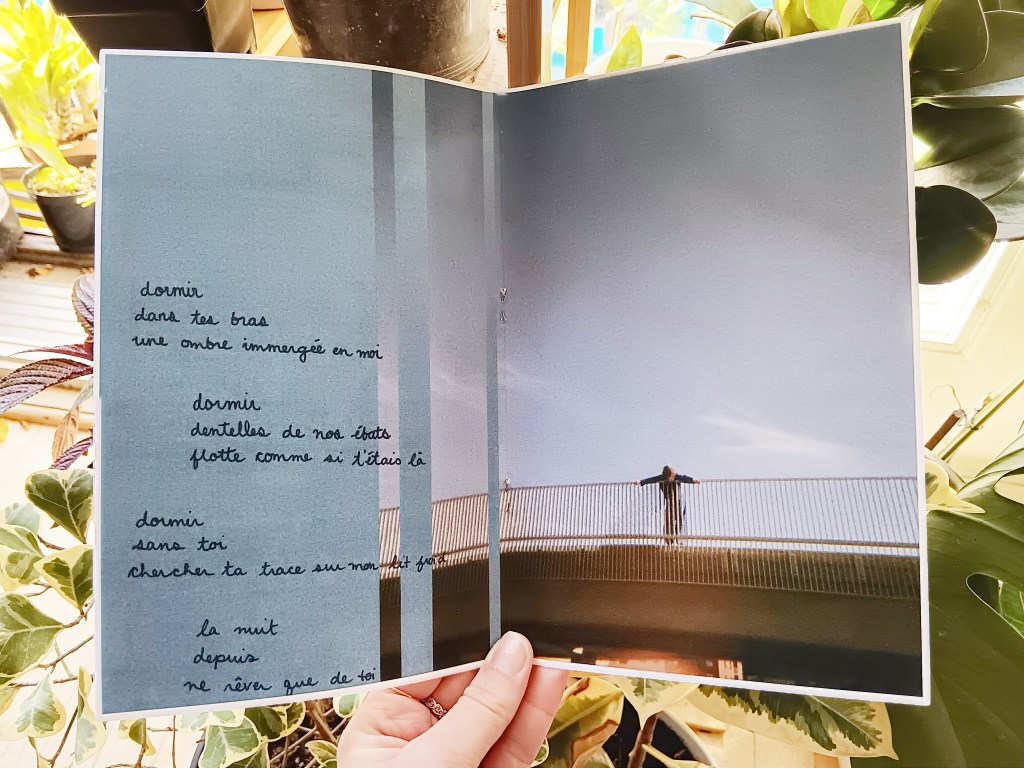 dormir
dans tes bras
une ombre immergée en moi
dormir
dentelles de nos ébats
flotte comme si t'étais là
dormir
sans toi
chercher ta trace sur mon lit froid
la nuit
depuis
ne rêver que de toi